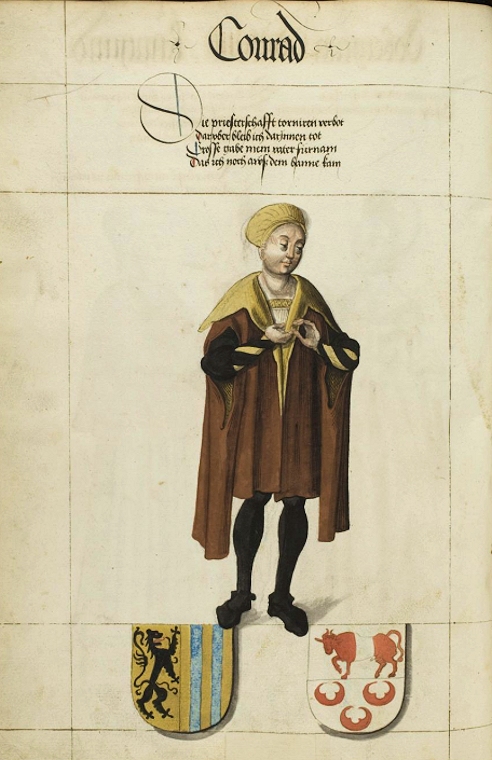 Conrad
Die priesterschafft torniren verbot
Darober bleib ich darinnen tot
Grosse gabe mein vater furnam
Das ich noch awss dem banne kam